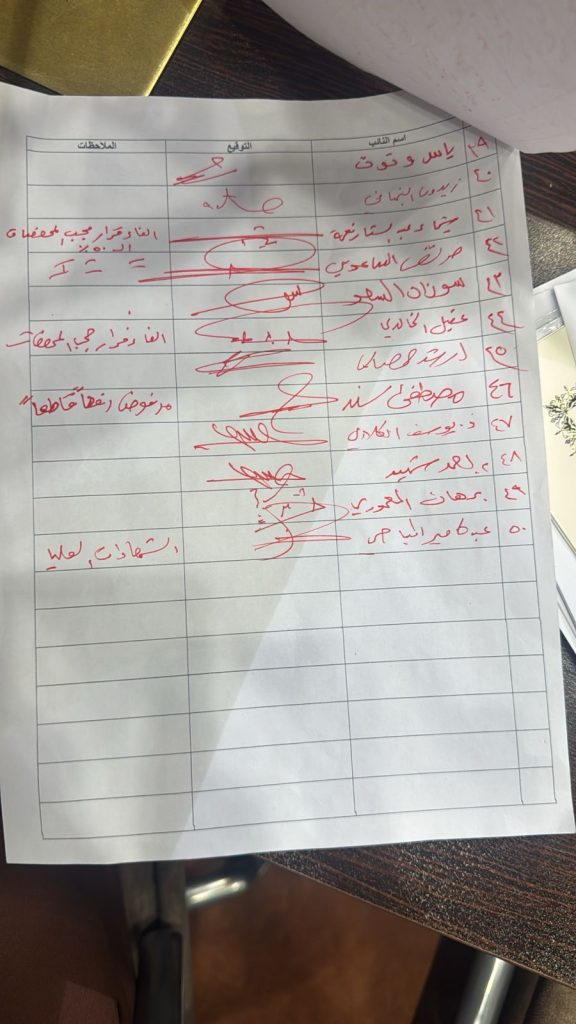 اسم النائب التوقيع الملاحظات
٣٩ ياس وتوت
٤٠ زيدون النبهاني
٤١ الغاء قرار حجب المخصصات
٤٢ مرتضى الساعدي الـ ٥٠٪
٤٣ سوزان السعد
٤٤ عقيل الخالدي الغاء قرار حجب المخصصات
٤٥ ارشد
٤٦ مصطفى سند مرفوض رفضاً قاطعاً
٤٧ د. يوسف الكلابي
٤٨ د. احمد شهيد
٤٩ برهان المعموري
٥٠ عبد الامير المياحي الشهادات العليا